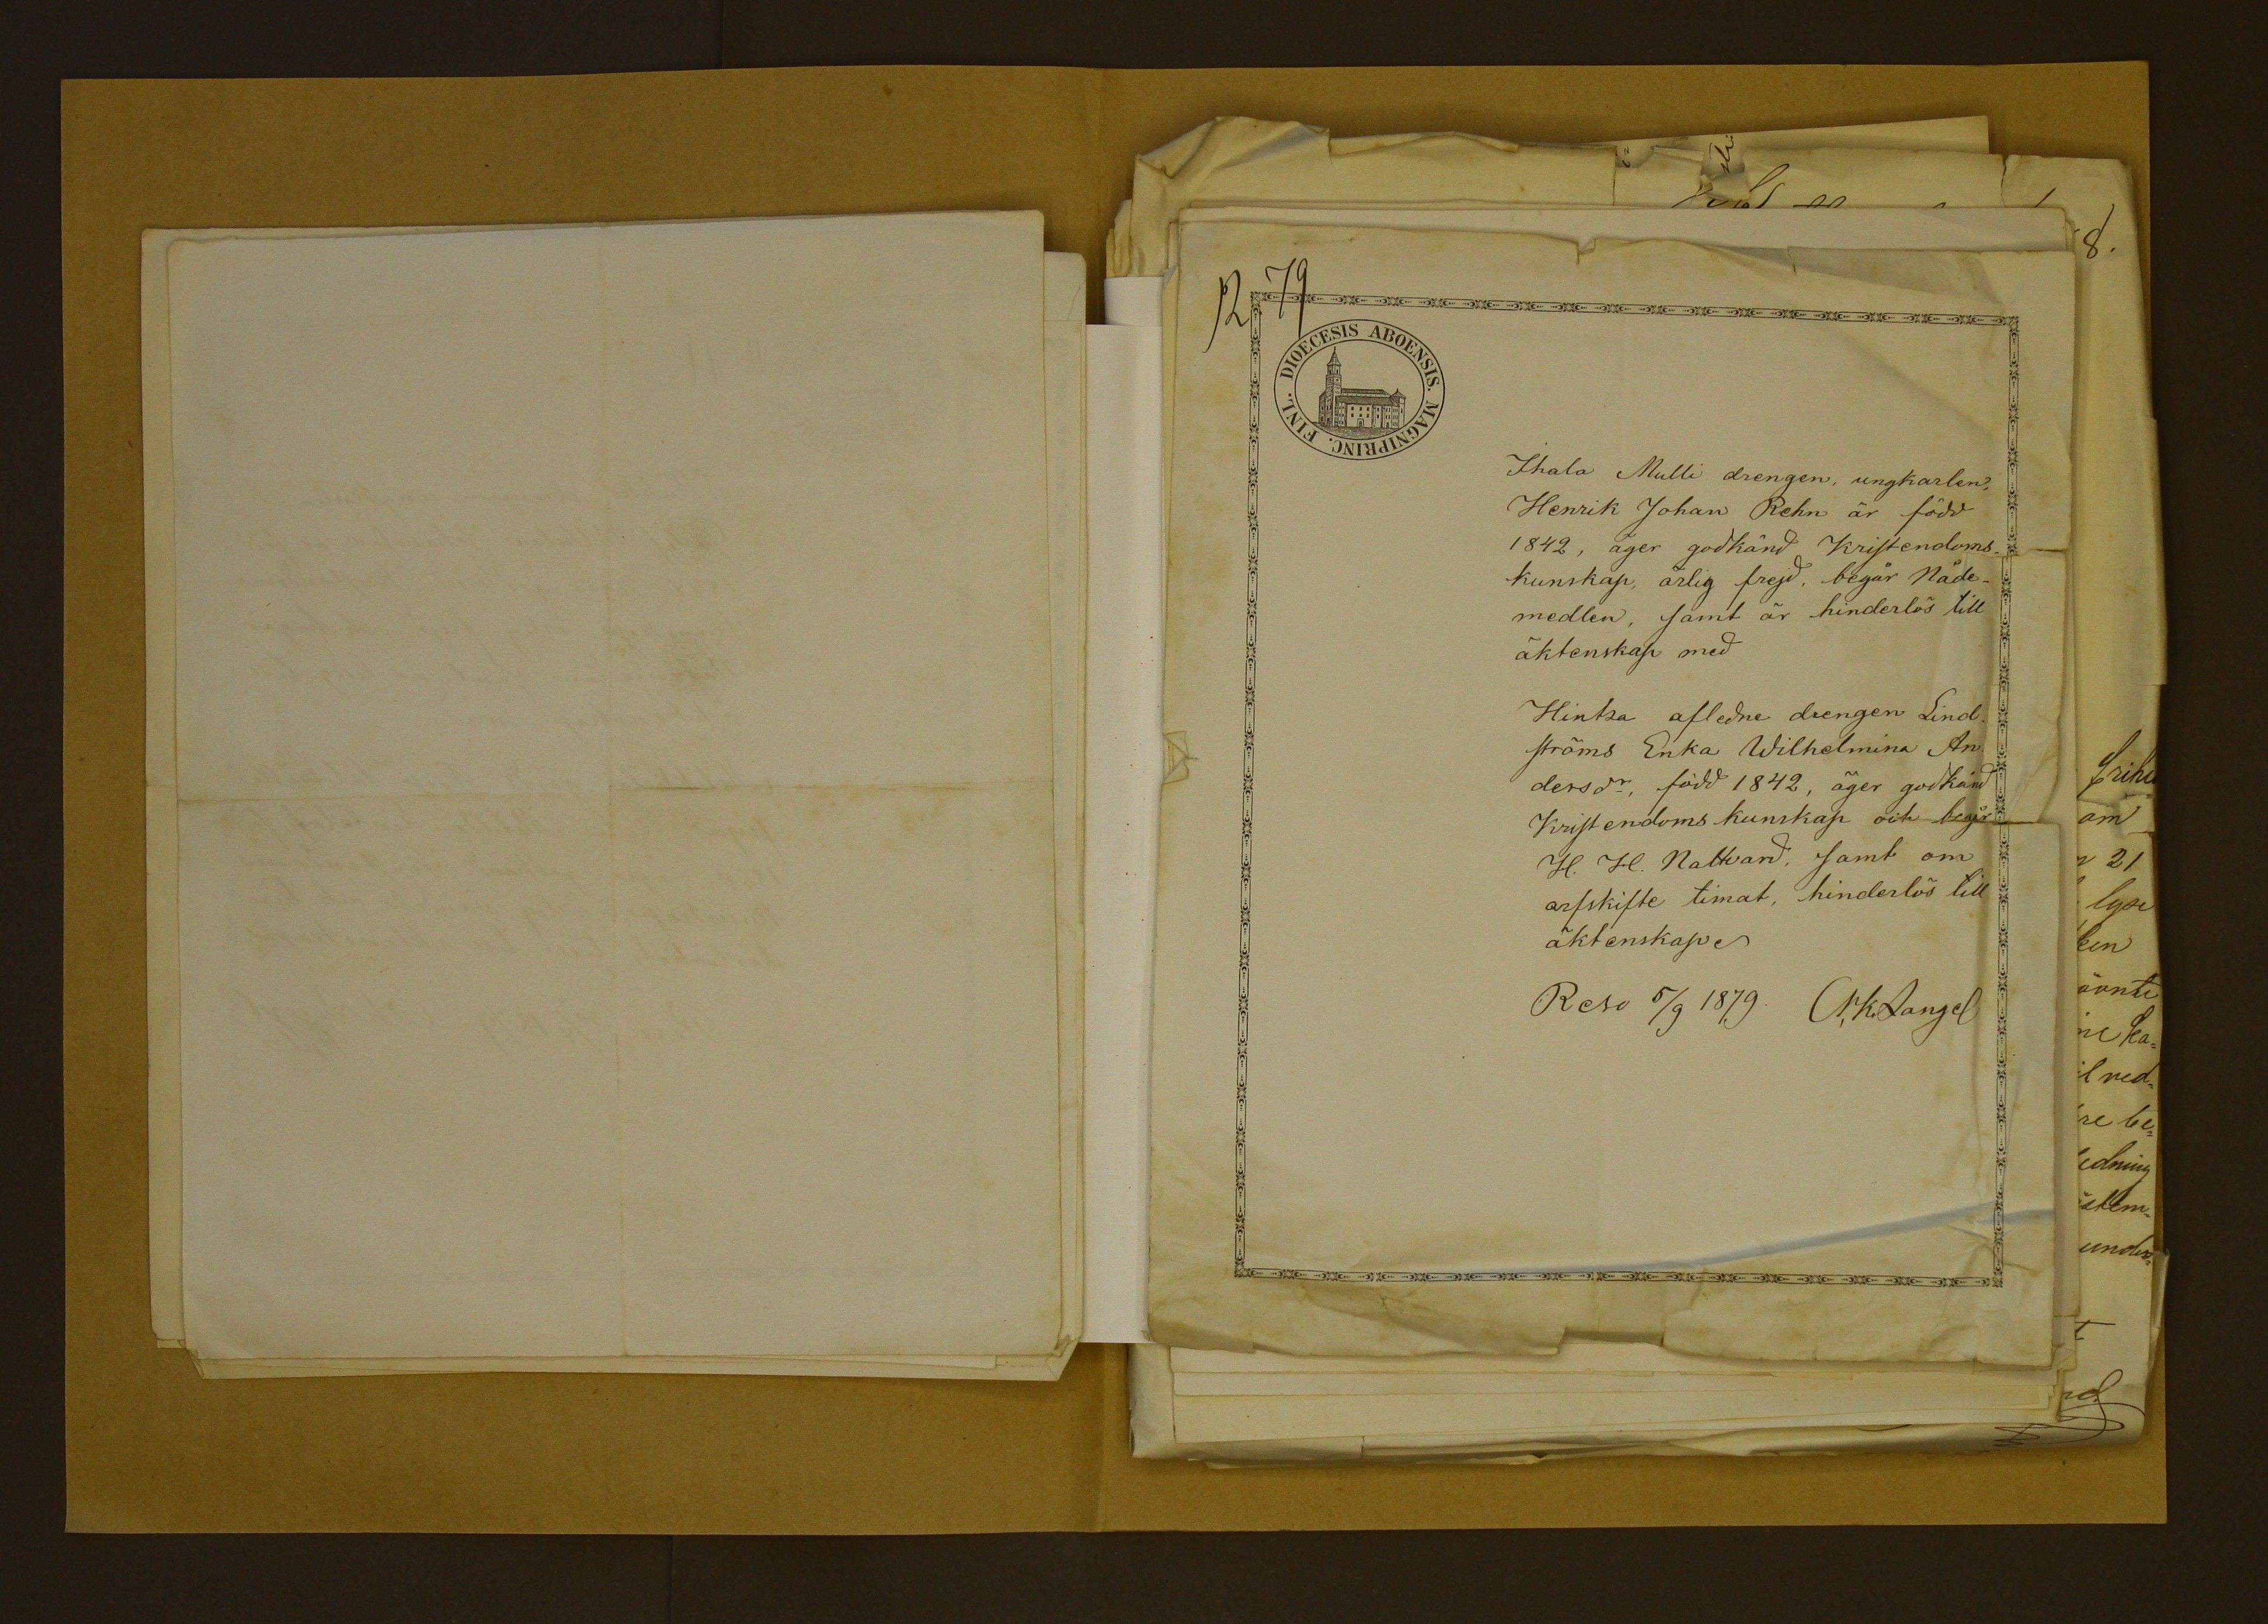 12 79
DIOECESIS ABOENSIS. MAGNIPRINC. FINL.
Ihala Mulli drengen, ungkarlen,
Henrik Johan Rehn är född
1842, äger godkänd Kristendoms-
kunskap, ärlig frejd, begår Nåde-
medlen, samt är hinderlös till
äktenskap med
Hintsa afledne drengen Lind-
ströms Enka Wilhelmina An
dersdr, född 1842, äger godkänd
Kristendoms kunskap och begår
H. H. Nattvard, samt om
arfskifte timat, hinderlös till
äktenskap
Reso 5/9 1879. K. Tangel
8.
am
21
lyse
ken
ne ka=
l ned=
re be=
edning
stäm=
under=